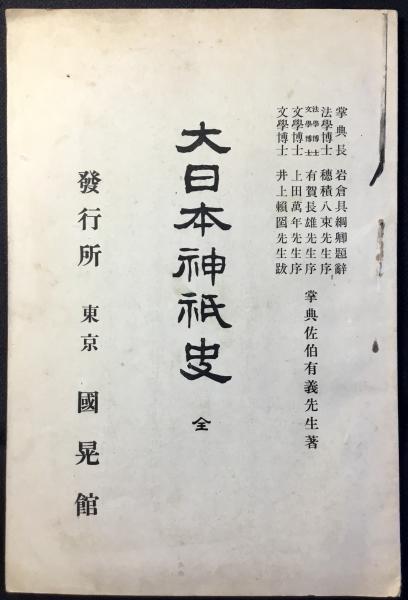 掌典長 岩倉具綱卿題辭
法學博士 穗積八束先生序
法學博士 文學博士 有賀長雄先生序
文學博士 上田萬年先生序
文學博士 井上賴囶先生跋
掌典佐伯有義先生著
大日本神祇史 全
發行所 東京 國晃館